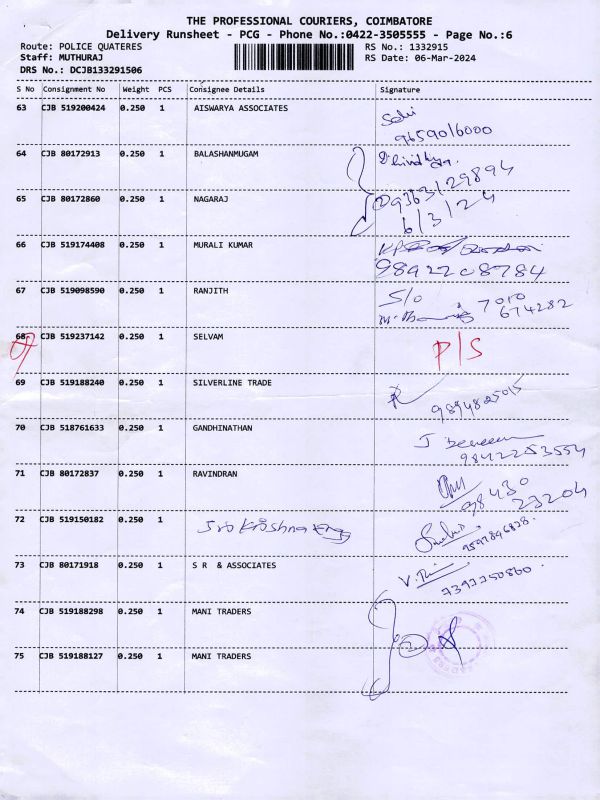 THE PROFESSIONAL COURIERS, COIMBATORE
Delivery Runsheet - PCG - Phone No.:0422-3505555 - Page No.:6
Route: POLICE QUATERES RS No.: 1332915
Staff: MUTHURAJ RS Date: 06-Mar-2024
DRS No.: DCJB133291506
S No Consignment No Weight PCS Consignee Details Signature
63 CJB 519200424 0.250 1 AISWARYA ASSOCIATES
9659016000
64 CJB 80172913 0.250 1 BALASHANMUGAM
9363129894
65 CJB 80172860 0.250 1 NAGARAJ
6/3/24
66 CJB 519174408 0.250 1 MURALI KUMAR
9892208784
67 CJB 519098590 0.250 1 RANJITH S/o
7010
674282
68 CJB 519237142 0.250 1 SELVAM P/S
69 CJB 519188240 0.250 1 SILVERLINE TRADE
9894825015
70 CJB 518761633 0.250 1 GANDHINATHAN
9842253554
71 CJB 80172837 0.250 1 RAVINDRAN
98430
23204
72 CJB 519150182 0.250 1 Sri Krishna Engg
9597896828.
73 CJB 80171918 0.250 1 S R & ASSOCIATES
7393350860.
74 CJB 519188298 0.250 1 MANI TRADERS
2
75 CJB 519188127 0.250 1 MANI TRADERS